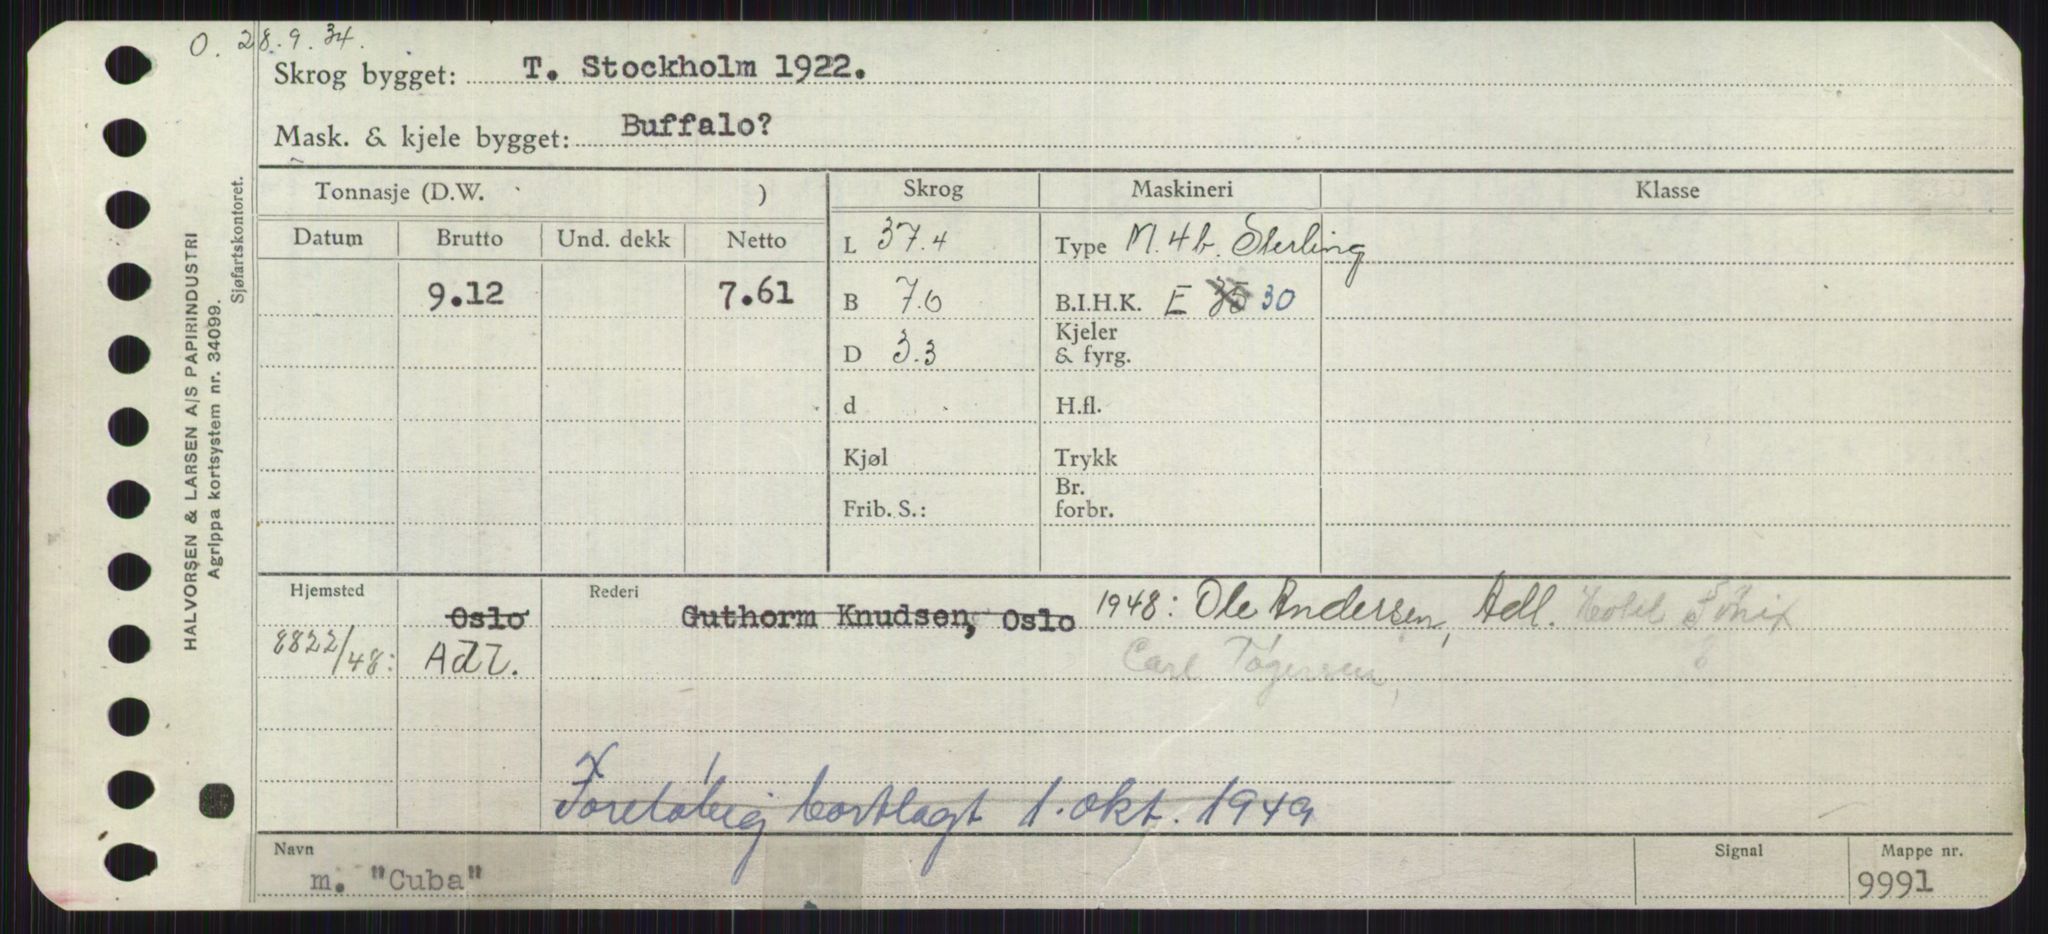 O. 28.9.34.
Skrog bygget: T. Stockholm 1922.
Mask. & kjele bygget: Buffalo?
HALVORSEN & LARSEN A/S PAPIRINDUSTRI
Agrippa kortsystem nr. 34099.
Sjøfartskontoret.
Tonnasje (D.W. ) Skrog Maskineri Klasse
Datum Brutto Und. dekk Netto L 37.4 Type M. 4b. Sterling
9.12 7.61 B 7.6 B.I.H.K. E 30
D 3.3 Kjeler
& fyrg.
d H.fl.
Kjøl Trykk
Frib. S.: Br.
forbr.
Hjemsted Oslo Rederi Guthorm Knudsen, Oslo 1948: Ole Andersen, Adl. Hotel
8822/48: Adl. Carl
Foreløbig bortlagt 1. okt. 1949
Navn Signal Mappe nr.
m. "Cuba" 9991